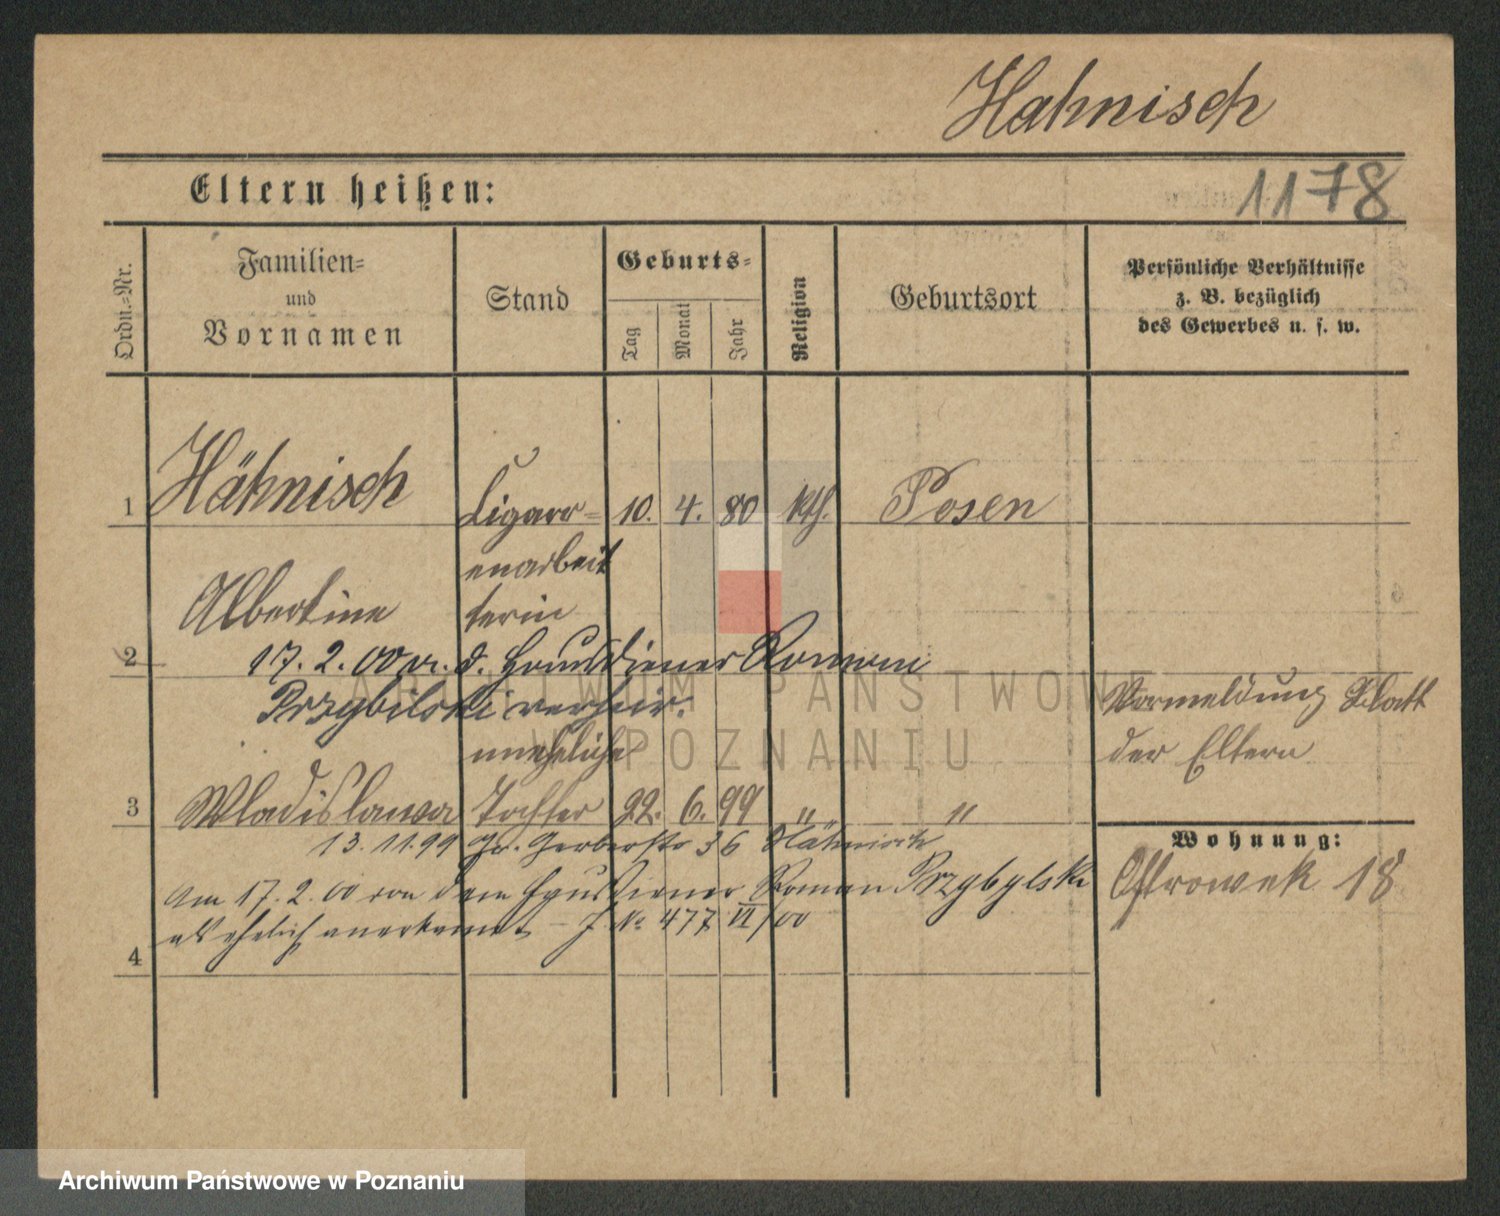 Hähnisch
Eltern heißen:
1178
Ordn.-Nr.
Familien-
und
Vornamen
Stand
Geburts-
Tag
Monat
Jahr
Religion
Geburtsort
Persönliche Verhältnisse
z. B. bezüglich
des Gewerbes u. s. w.
1 Hähnisch Cigarr- 10. 4. 80 kth. Posen
enarbeit
Albertine terin
2 17. 2. 00 m. d. Hausdiener Roman
Przybilski verheir.
Vormeldung Blatt
der Eltern
uneheliche
3 Wladislawa Tochter 22. 6. 99 " "
13. 11. 99 Gr. Gerberstr 36 Hähnisch
Wohnung:
Ostrowek 18
Am 17. 2. 00 von dem Hausdiener Roman Przybylski
als ehelich anerkannt – J. No 477 VI/00
4
ARCHIWUM PAŃSTWOWE
W POZNANIU
Archiwum Państwowe w Poznaniu